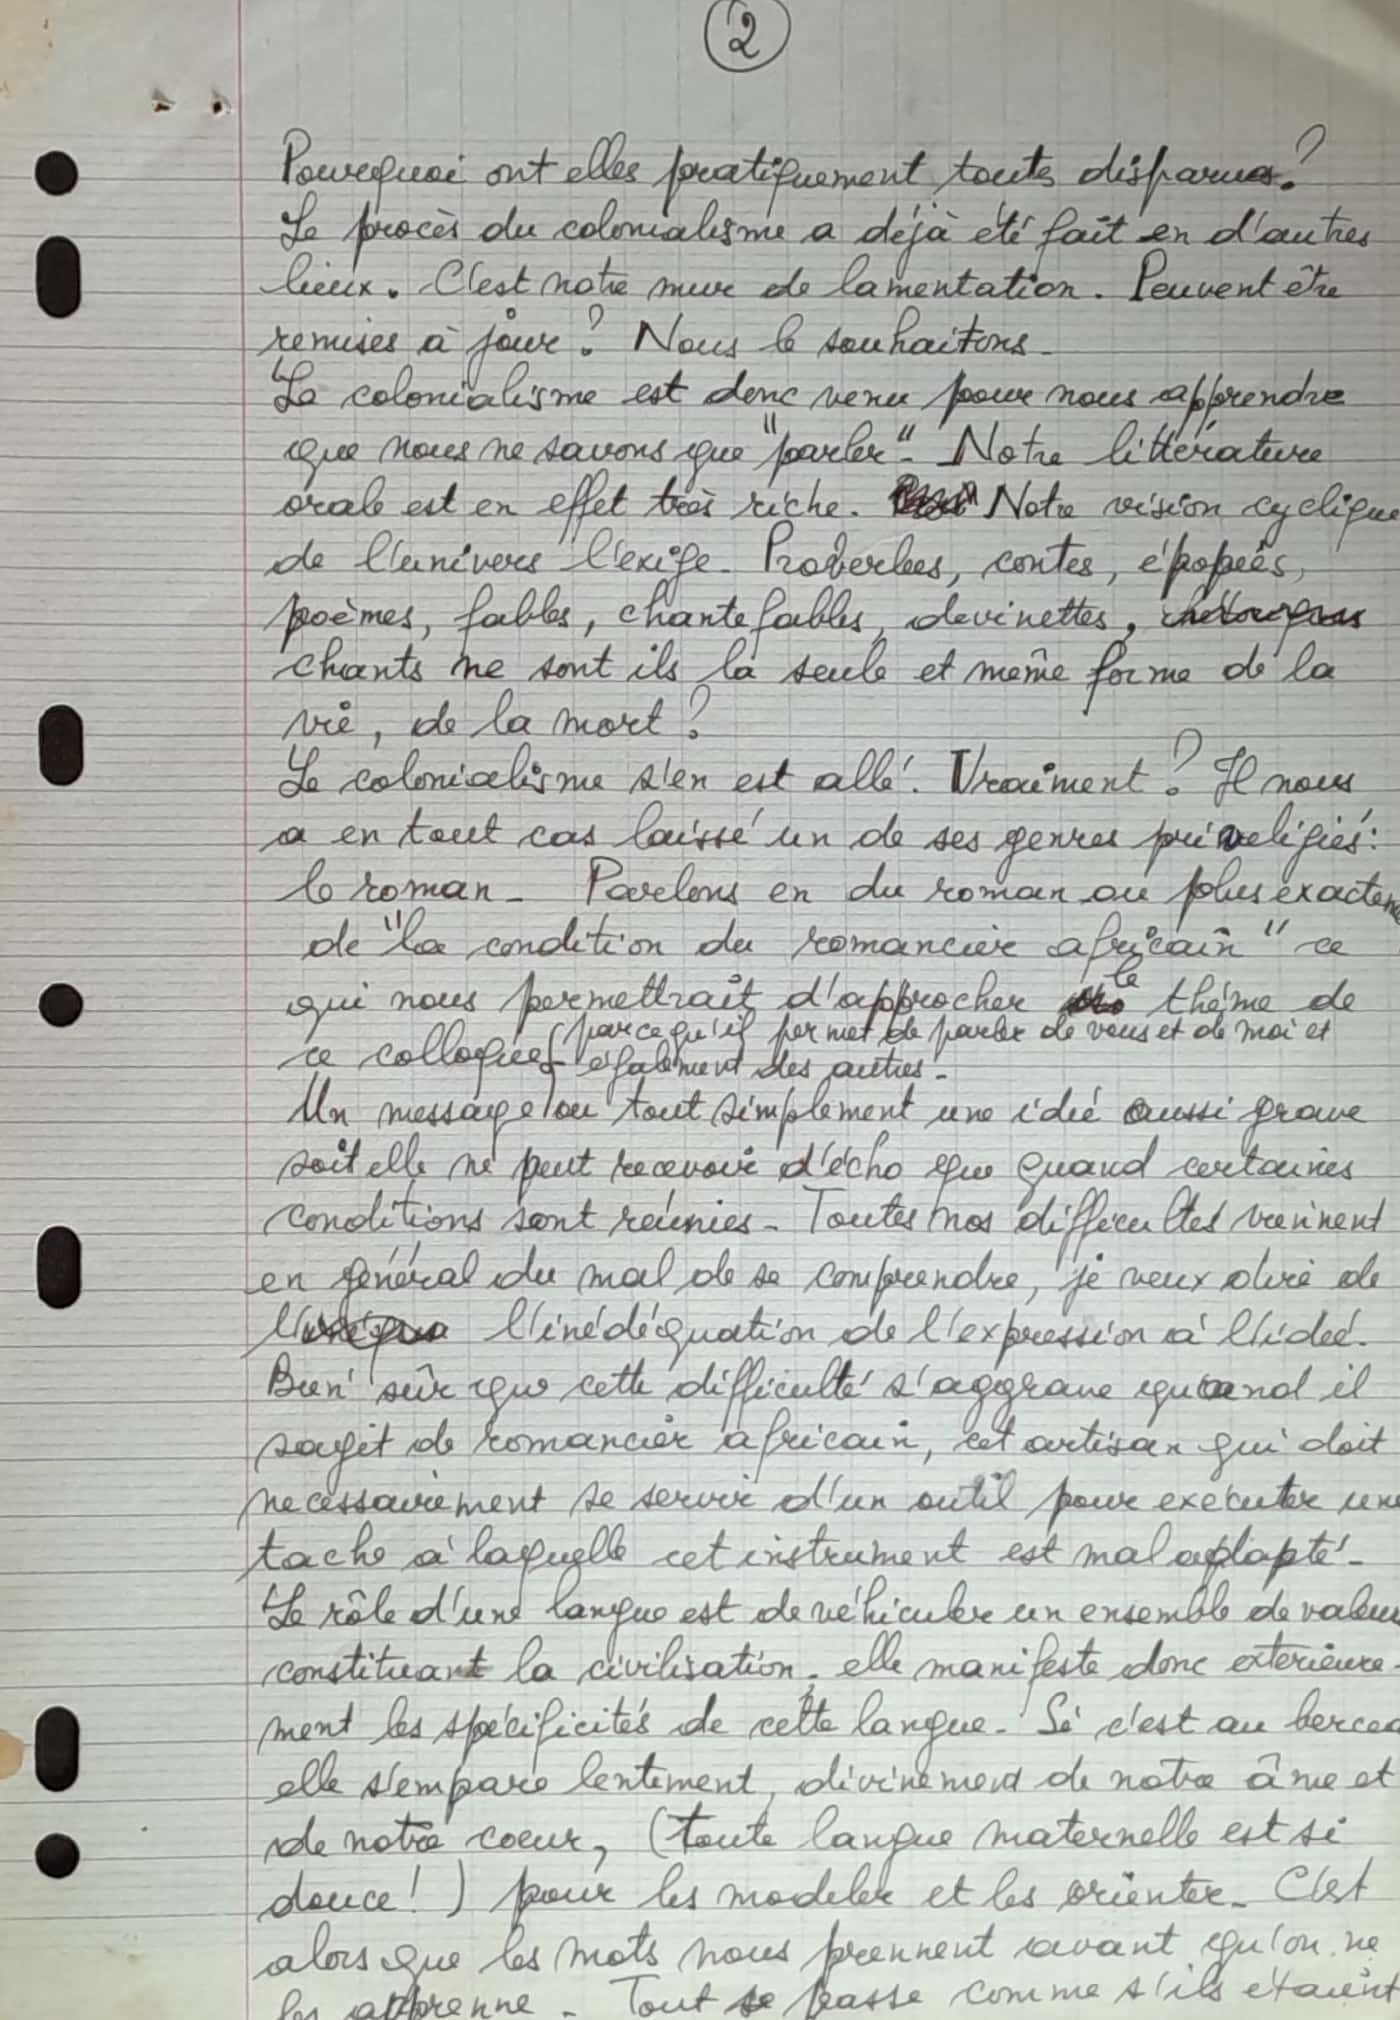 2
Pourquoi ont elles pratiquement toutes disparues?
Le procès du colonialisme a déjà été fait en d'autres
lieux. C'est notre mur de lamentation. Peuvent être
remises à jour? Nous le souhaitons -
Le colonialisme est donc venu pour nous apprendre
que nous ne savons que "parler" - Notre littérature
orale est en effet très riche. Notre vision cyclique
de l'univers l'exige - Proverbes, contes, épopées,
poèmes, fables, chantefables, devinettes,
chants ne sont ils la seule et même forme de la
vie, de la mort?
Le colonialisme s'en est allé. Vraiment? Il nous
a en tout cas laissé un de ses genres priveligiés:
le roman - Parlons en du roman ou plus exacteme
de "la condition du romancier africain" ce
qui nous permettrait d'approcher le thème de
ce colloque parce qu'il permet de parler de vous et de moi et
également des autres -
Un message ou tout simplement une idée aussi grave
soit elle ne peut recevoir d'écho que quand certaines
conditions sont réunies - Toutes nos difficultés viennent
en général du mal de se comprendre, je veux dire de
l'inédéquation de l'expression à l'idée.
Bien sûr que cette difficulté s'aggrave quand il
sagit de romancier africain, cet artisan qui doit
necessairement se servir d'un outil pour exécuter une
tache à laquelle cet instrument est mal adapté -
Le rôle d'une langue est de véhiculer un ensemble de valeu
constituant la civilisation; elle manifeste donc exterieure-
ment les spécificités de cette langue - Si c'est au bercea
elle s'empare lentement, divinement de notre âme et
de notre coeur, (toute langue maternelle est si
douce!) pour les modeler et les orienter - C'est
alors que les mots nous prennent avant qu'on ne
les apprenne - Tout se passe comme s'ils étaient